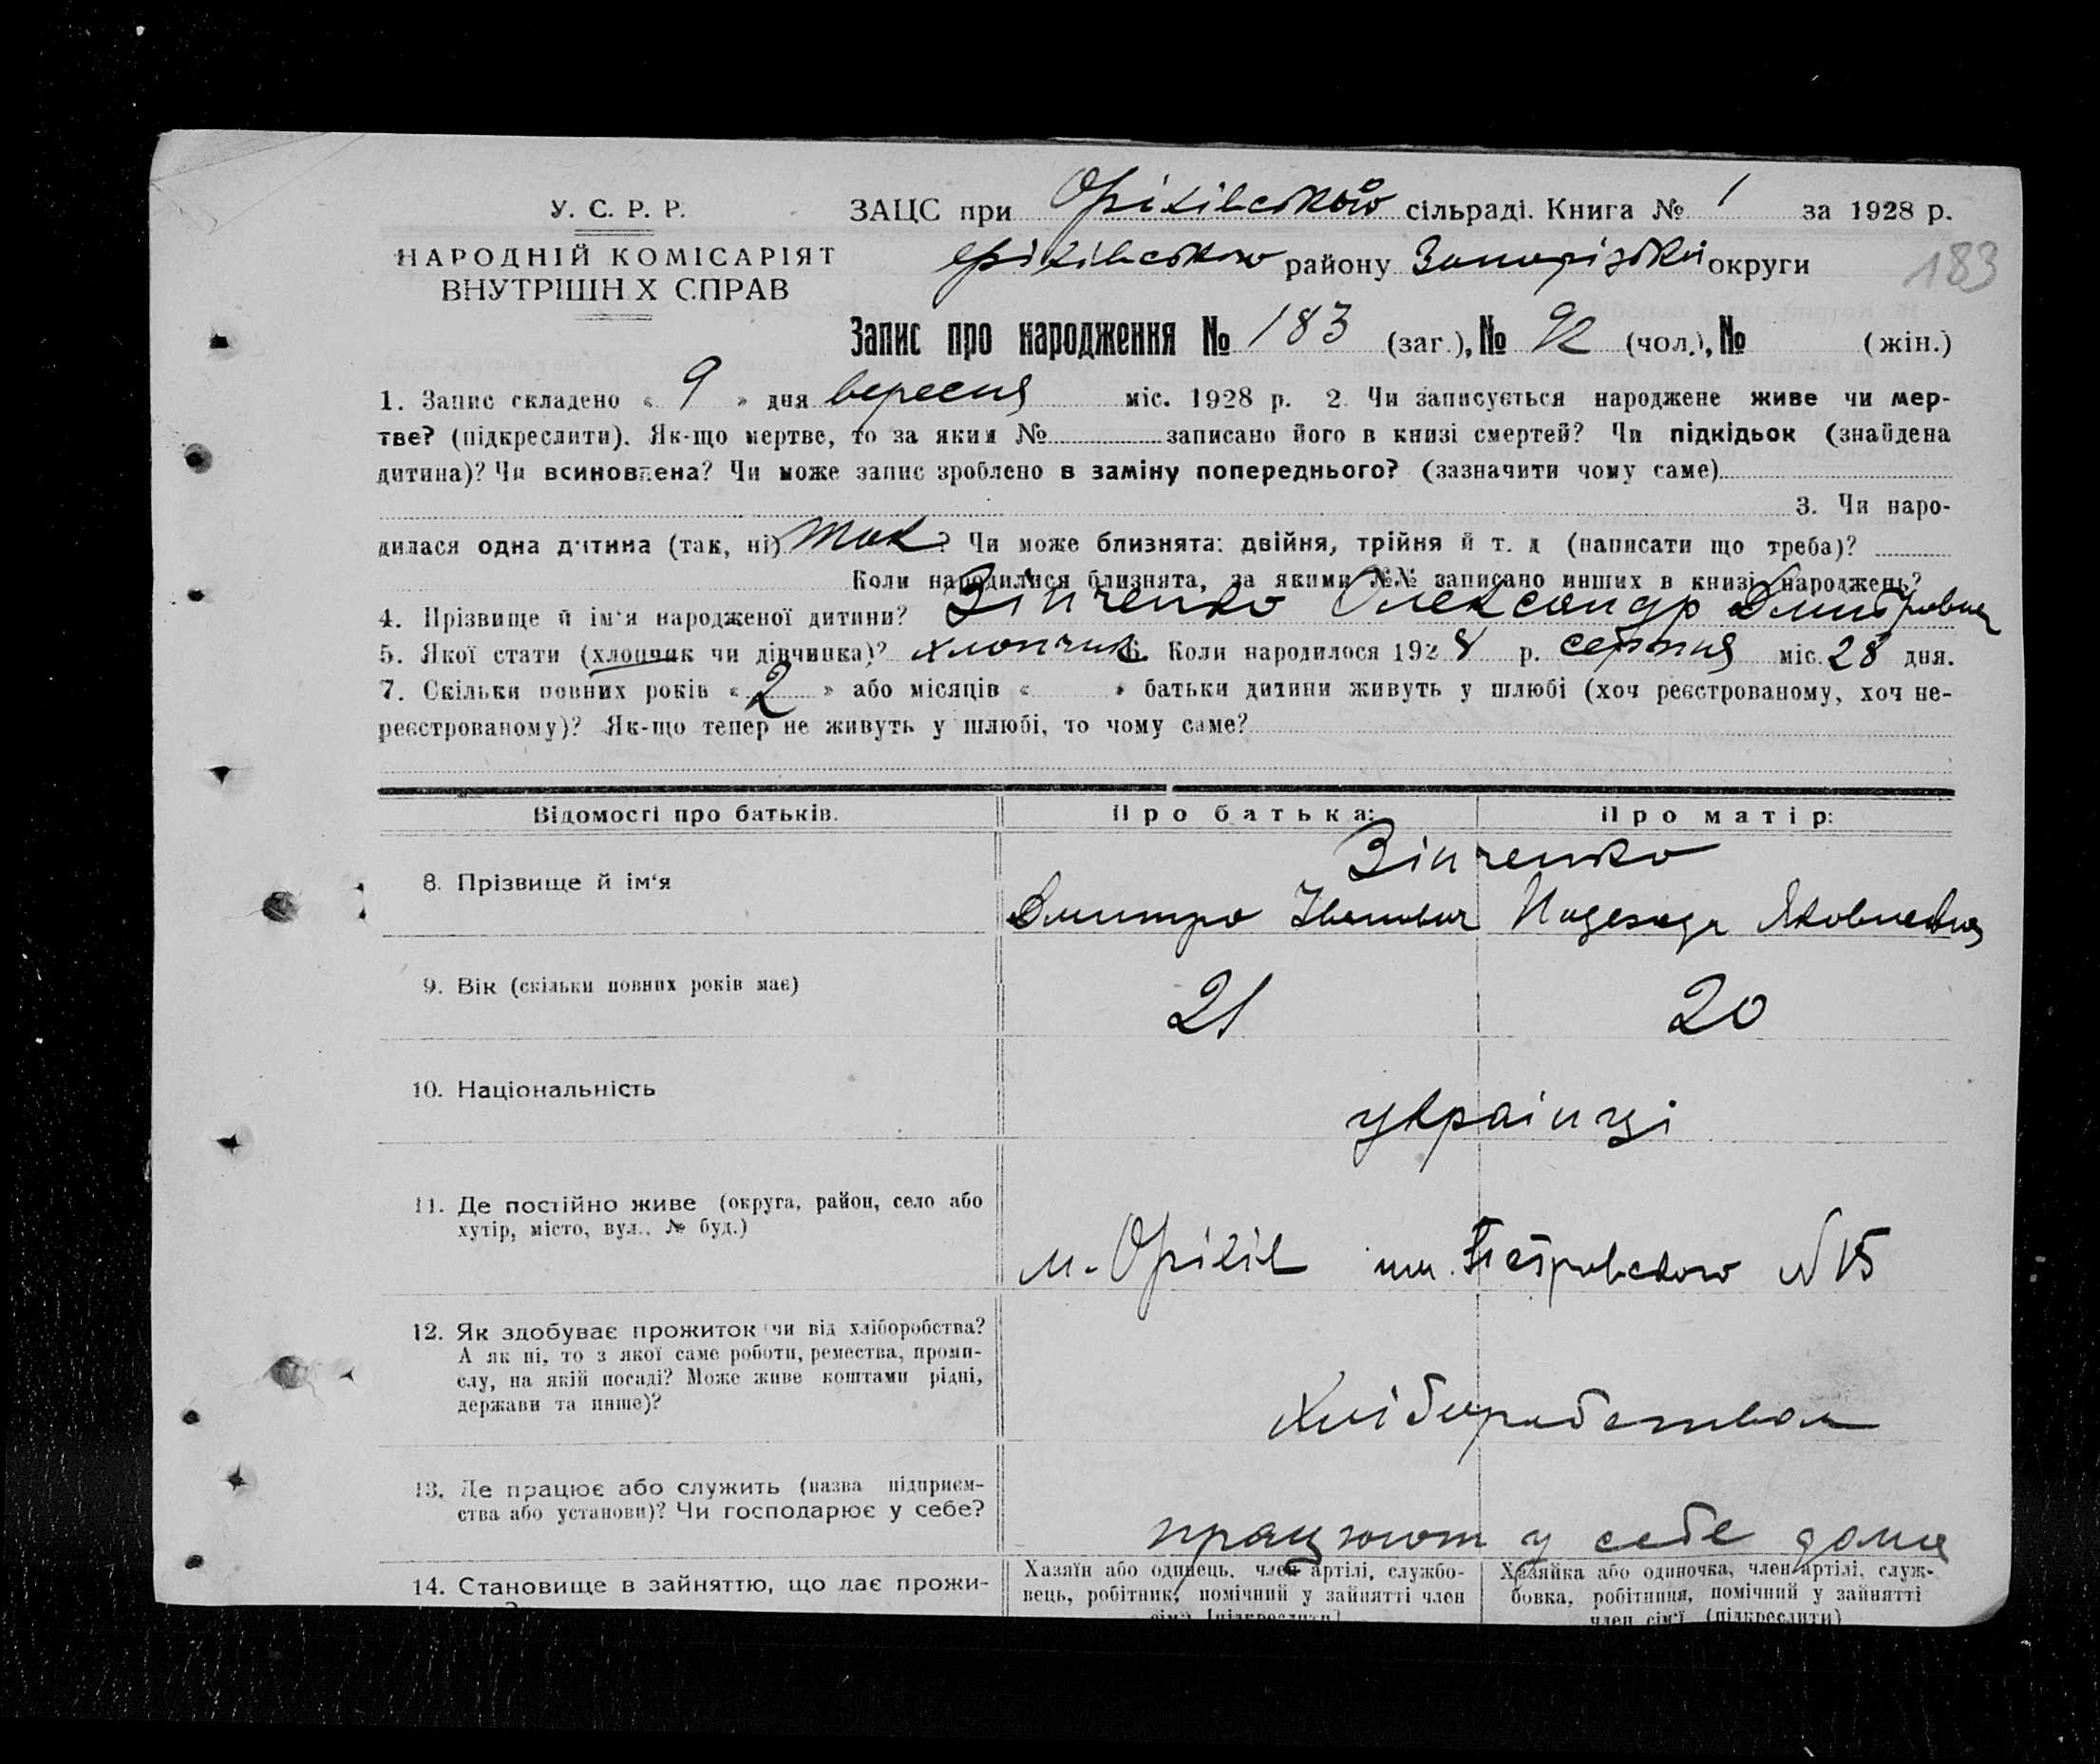 У. С. Р. Р.
НАРОДНІЙ КОМІСАРІЯТ
ВНУТРІШН Х СПРАВ
ЗАЦС при Оріхівській сільраді. Книга № 1 за 1928 р.
Оріхівського району Запорізької округи
183
Запис про народження № 183 (заг.), № 92 (чол.), № (жін.)
1. Запис складено « 9 » дня вересня міс. 1928 р. 2 Чи записується народжене живе чи мер-
тве? (підкреслити). Як-що мертве, то за яким № записано його в книзі смертей? Чи підкідьок (знайдена
дитина)? Чи всиновлена? Чи може запис зроблено в заміну попереднього? (зазначити чому саме)
3. Чи наро-
дилася одна дитина (так, ні) так? Чи може близнята: двійня, трійня й т. д (написати що треба)?
Коли народилися близнята, за якими №№ записано инших в книзі народжень?
4. Прізвище й ім'я народженої дитини? Зінченко Олександр Дмитрович
5. Якої стати (хлопчик чи дівчинка)? хлопчик 6. Коли народилося 1928 р. серпня міс. 28 дня.
7. Скільки повних років « 2 » або місяців « » батьки дитини живуть у шлюбі (хоч реєстрованому, хоч не-
реєстрованому)? Як-що тепер не живуть у шлюбі, то чому саме?
Відомості про батьків. Про батька: Про матір:
8. Прізвище й ім'я Зінченко
Дмитро Іванович Надежда Яковлевна
9. Вік (скільки повних років має) 21 20
10. Національність українці
11. Де постійно живе (округа, район, село або
хутір, місто, вул., № буд.)
м. Оріхів Петровского № 15
12. Як здобуває прожиток чи від хліборобства?
А як ні, то з якої саме роботи, ремества, проми-
слу, на якій посаді? Може живе коштами рідні,
держави та инше)?
Хліборобством
13. Де працює або служить (назва підприєм-
ства або установи)? Чи господарює у себе?
працюют у себе дома
14. Становище в зайняттю, що дає прожи-
Хазяїн або одинець, член артілі, службо-
вець, робітник, помічний у зайнятті член
сім'ї [підкреслити]
Хазяйка або одиночка, член артілі, служ-
бовка, робітниця, помічний у зайнятті
член сім'ї (підкреслити)